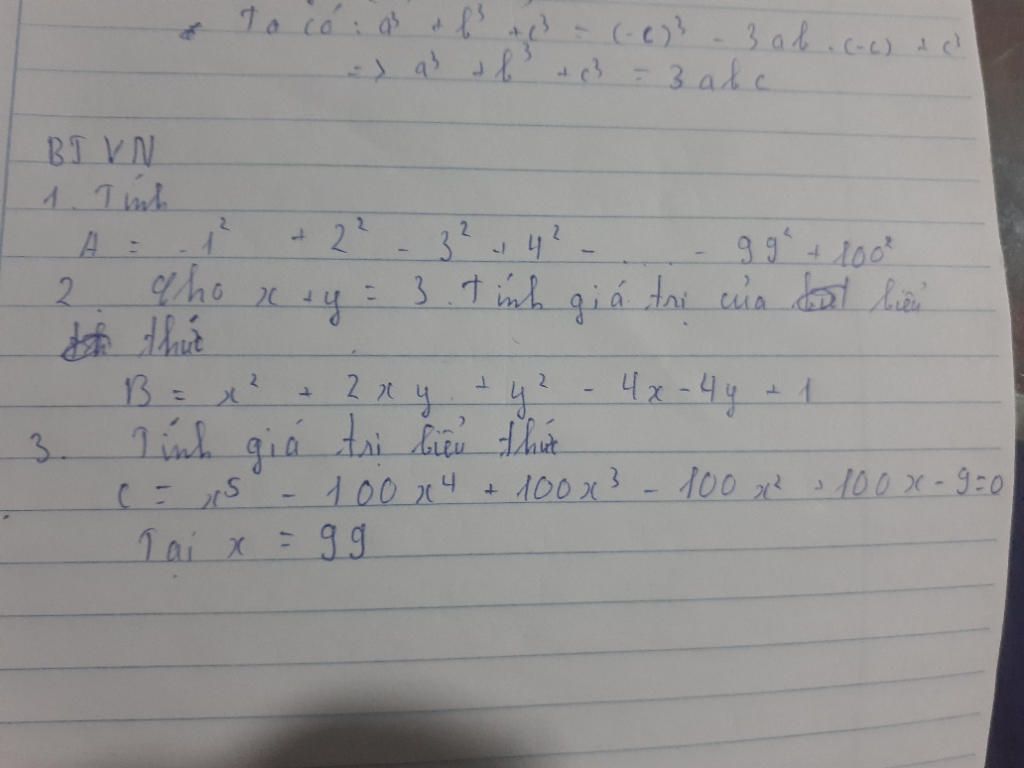 Ta có: a³ + b³ + c³ = (-c)³ - 3ab.(-c) + c³
=> a³ + b³ + c³ = 3abc
BTVN
1. Tính
A = -1² + 2² - 3² + 4² - .... - 99² + 100²
2. Cho x + y = 3. Tính giá trị của biểu
thức
B = x² + 2xy + y² - 4x - 4y + 1
3. Tính giá trị biểu thức
C = x⁵ - 100x⁴ + 100x³ - 100x² + 100x - 9 = 0
Tại x = 99